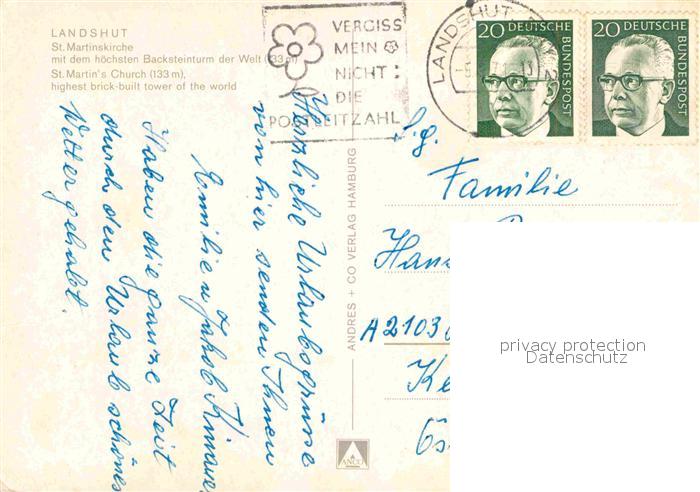 LANDSHUT
St. Martinskirche
mit dem höchsten Backsteinturm der Welt (133 m)
St. Martin's Church (133 m),
highest brick-built tower of the world
VERGISS
MEIN
NICHT
DIE
POSTLEITZAHL
LANDSHUT
20 DEUTSCHE
BUNDESPOST
20 DEUTSCHE
BUNDESPOST
Herzliche Urlaubsgrüsse
von hier senden Ihnen
Emilie u Jakob
Haben die ganze Zeit
durch den Urlaub schönes
Wetter gehabt.
ANDRES + CO VERLAG HAMBURG
ANCO
Familie
A 2103
privacy protection
Datenschutz